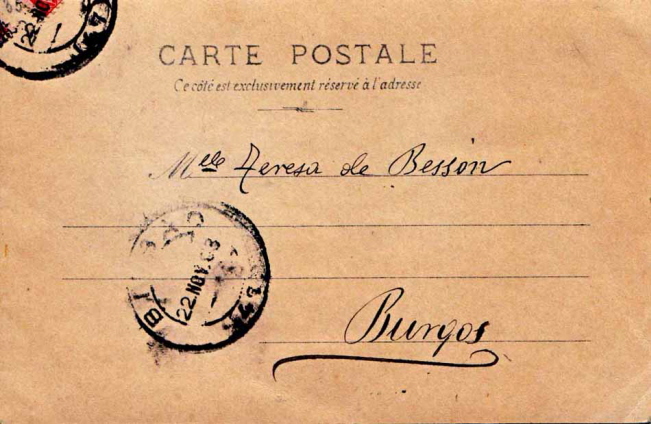 CARTE POSTALE
Ce côté est exclusivement réservé à l'adresse
Melle Teresa de Bessón
22 NOV 03
Burgos